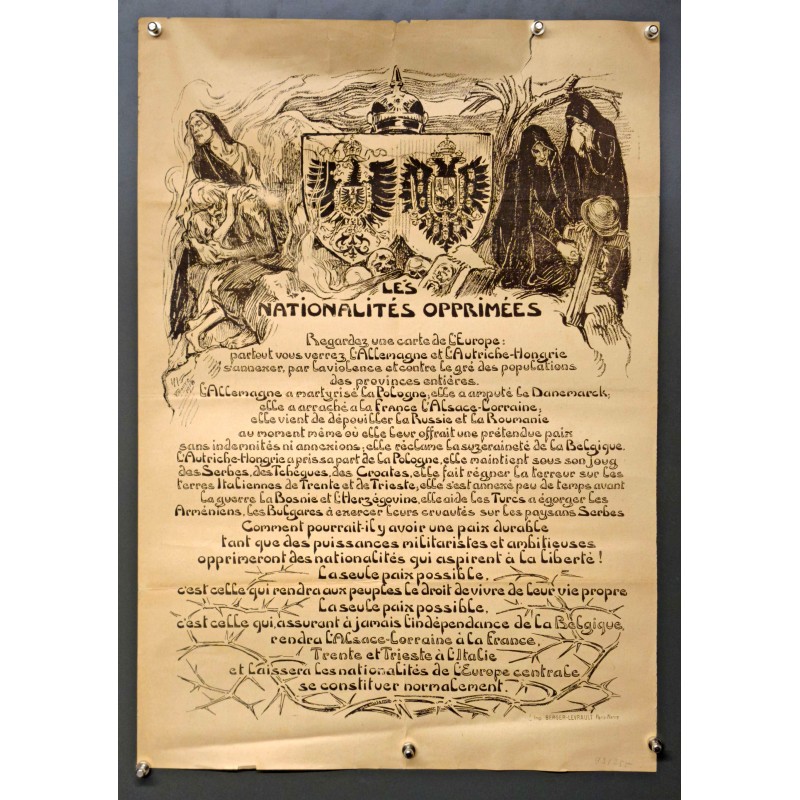 LES
NATIONALITÉS OPPRIMÉES
Regardez une carte de l'Europe:
partout vous verrez l'Allemagne et l'Autriche-Hongrie
s'annexer, par la violence et contre le gré des populations
des provinces entières.
L'Allemagne a martyrisé la Pologne; elle a amputé le Danemarck;
elle a arraché a la France l'Alsace-Lorraine;
elle vient de dépouiller la Russie et la Roumanie
au moment même où elle leur offrait une prétendue paix
sans indemnités ni annexions; elle réclame la suzeraineté de la Belgique.
L'Autriche-Hongrie a pris sa part de la Pologne, elle maintient sous son joug
des Serbes, des Tchéques, des Croates, elle fait régner la terreur sur les
terres Italiennes de Trente et de Trieste; elle s'est annexé peu de temps avant
la guerre la Bosnie et l'Herzégovine, elle aide les Turcs a égorger les
Arméniens, les Bulgares à exercer leurs cruautés sur les paysans Serbes
Comment pourrait-il y avoir une paix durable
tant que des puissances militaristes et ambitieuses
opprimeront des nationalités qui aspirent à la liberté!
La seule paix possible,
c'est celle qui rendra aux peuples le droit de vivre de leur vie propre
La seule paix possible,
c'est celle qui, assurant à jamais l'indépendance de la Belgique,
rendra l'Alsace-Lorraine à la France,
Trente et Trieste à l'Italie
et laissera les nationalités de l'Europe centrale
se constituer normalement.
Imp. BERGER-LEVRAULT